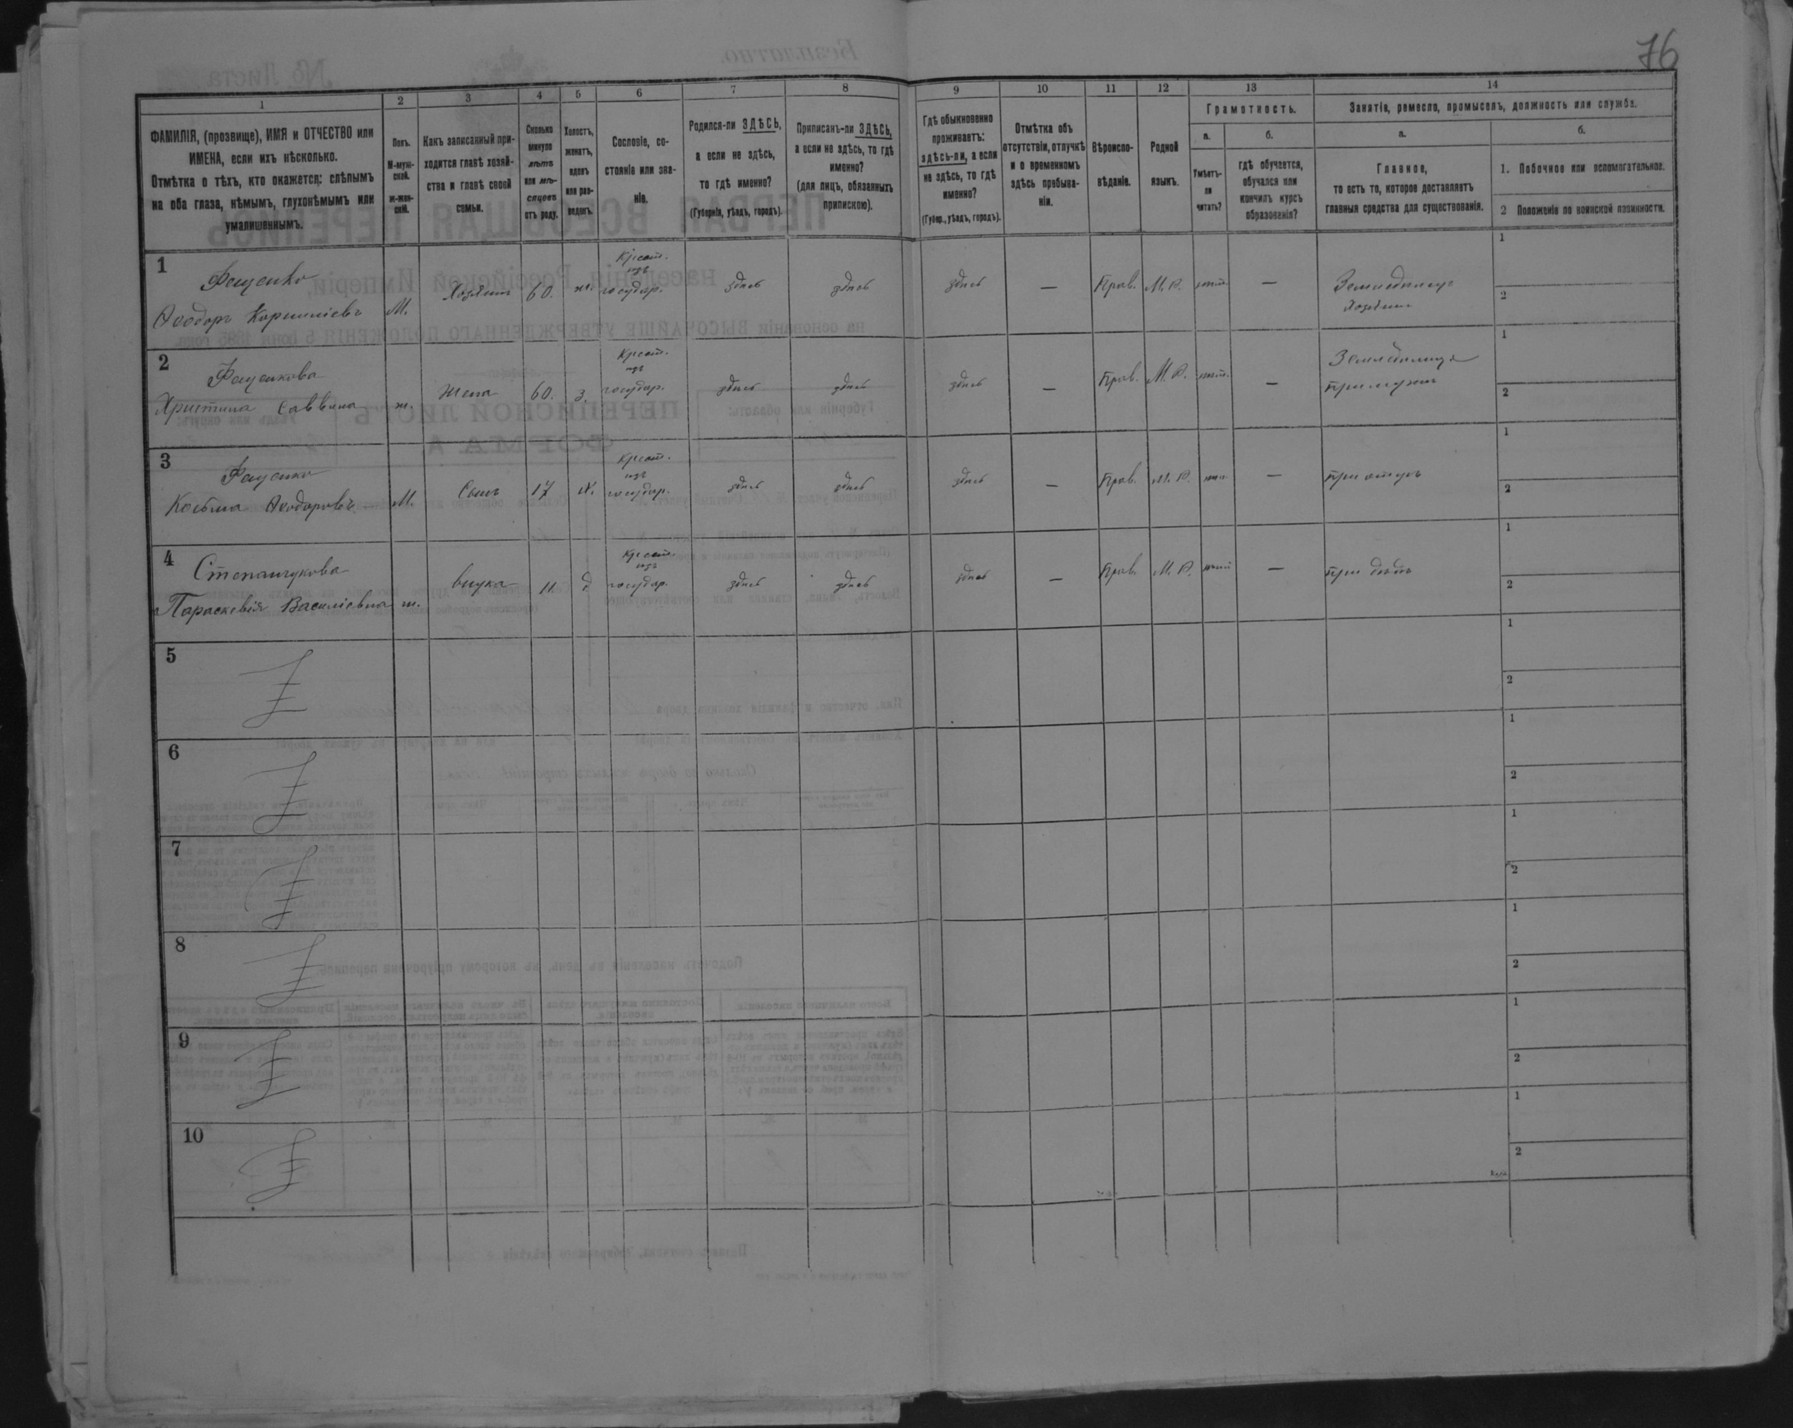 76
1 2 3 4 5 6 7 8 9 10 11 12 13 14
ФАМИЛІЯ, (прозвище), ИМЯ и ОТЧЕСТВО или
ИМЕНА, если ихъ нѣсколько.
Отмѣтка о тѣхъ, кто окажется: слѣпымъ
на оба глаза, нѣмымъ, глухонѣмымъ или
умалишеннымъ.
Полъ.
М-муж-
ской.
ж-жен-
скій.
Какъ записанный при-
ходится главѣ хозяй-
ства и главѣ своей
семьи.
Сколько
минуло
лѣтъ
или мѣ-
сяцевъ
отъ роду.
Холостъ,
женатъ,
вдовъ
или раз-
веденъ.
Сословіе, со-
стояніе или зва-
ніе.
Родился-ли ЗДѢСЬ,
а если не здѣсь,
то гдѣ именно?
(Губернія, уѣздъ, городъ).
Приписанъ-ли ЗДѢСЬ,
а если не здѣсь, то гдѣ
именно?
(для лицъ, обязанныхъ
припискою).
Гдѣ обыкновенно
проживаетъ:
здѣсь-ли, а если
не здѣсь, то гдѣ
именно?
(Губер., уѣздъ, городъ).
Отмѣтка объ
отсутствіи, отлучкѣ
и о временномъ
здѣсь пребыва-
ніи.
Вѣроиспо-
вѣданіе.
Родной
языкъ.
Грамотность.
а.
Умѣетъ-
ли
читать?
б.
гдѣ обучается,
обучался или
кончилъ курсъ
образованія?
Занятіе, ремесло, промыселъ, должность или служба.
а.
Главное,
то есть то, которое доставляетъ
главныя средства для существованія.
б.
1. Побочное или вспомогательное.
2 Положеніе по воинской повинности.
1
Фещенко
Ѳеодоръ М. Хозяинъ 60. Крест. изъ государ. здѣсь здѣсь здѣсь — Прав. М. Р. —
Земледѣлецъ
Хозяинъ
1
2
2
Фещенкова
Христина Саввина ж. Жена 60. з. Крест. изъ государ. здѣсь здѣсь здѣсь — Прав. М. Р. —
при мужѣ
1
2
3
Фещенко
Козьма Ѳеодоровъ М. Сынъ 17 х. Крест. изъ государ. здѣсь здѣсь здѣсь — Прав. М. Р. —
при отцѣ
1
2
4
Степанчукова
Параскевія Василіевна ж. внука 11 д Крест. изъ государ. здѣсь здѣсь здѣсь — Прав. М. Р. —
при дѣдѣ
1
2
5
1
2
6
1
2
7
1
2
8
1
2
9
1
2
10
1
2